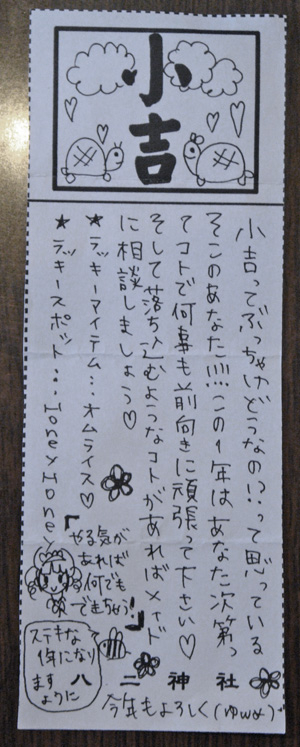 小吉
小吉ってぶっちゃけどうなの!?って思っている
そこのあなた!!!!この1年はあなた次第っ
てコトで何事も前向きに頑張って下さい♡
そして落ち込むようなコトがあればメイド
に相談しましょう♡
★ラッキーアイテム…オムライス♡
★ラッキースポット…HoneyHoney
「やる気が
あれば
何でも
できちゃう!」
ステキな
1年になり
ます
ように
八二神社
今年もよろしく(ゆwα)